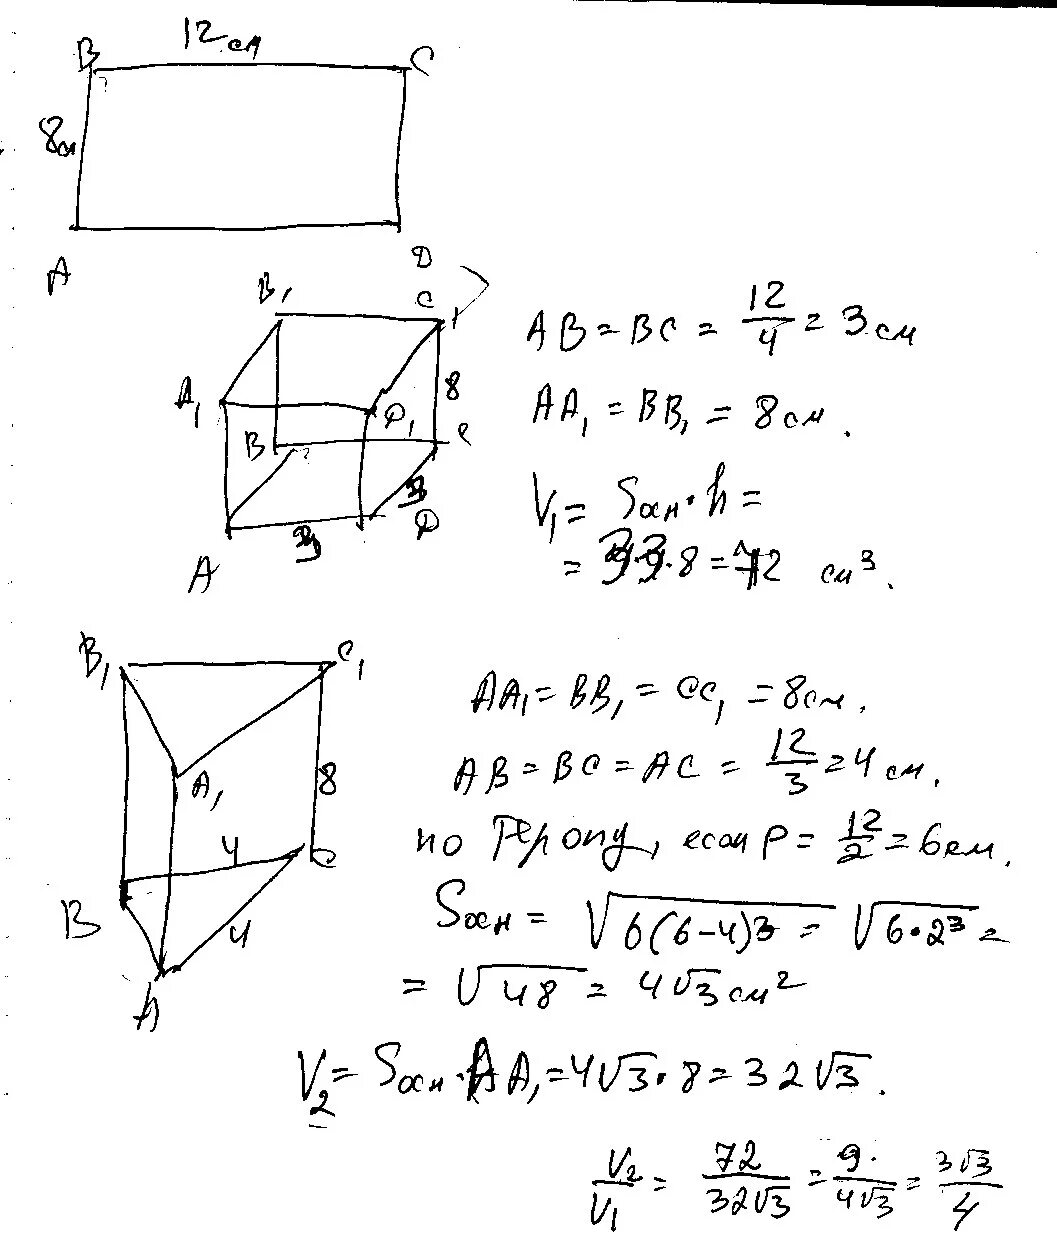 12 см
B C
8см
A D
B₁ C₁
A₁ D₁ 8
B C
3
3 D
A
AB = BC = 12/4 = 3 см
AA₁ = BB₁ = 8 см.
V₁ = Sосн · h =
= 3·3·8 = 72 см³.
B₁ C₁
A₁ 8
4 C
B 4
A
AA₁ = BB₁ = CC₁ = 8см.
AB = BC = AC = 12/3 = 4 см.
по Герону, если p = 12/2 = 6 см.
Sосн = √6(6-4)³ = √6·2³ =
= √48 = 4√3 см²
V₂ = Sосн · AA₁ = 4√3 · 8 = 32√3.
V₂/V₁ = 72/32√3 = 9/4√3 = 3√3/4